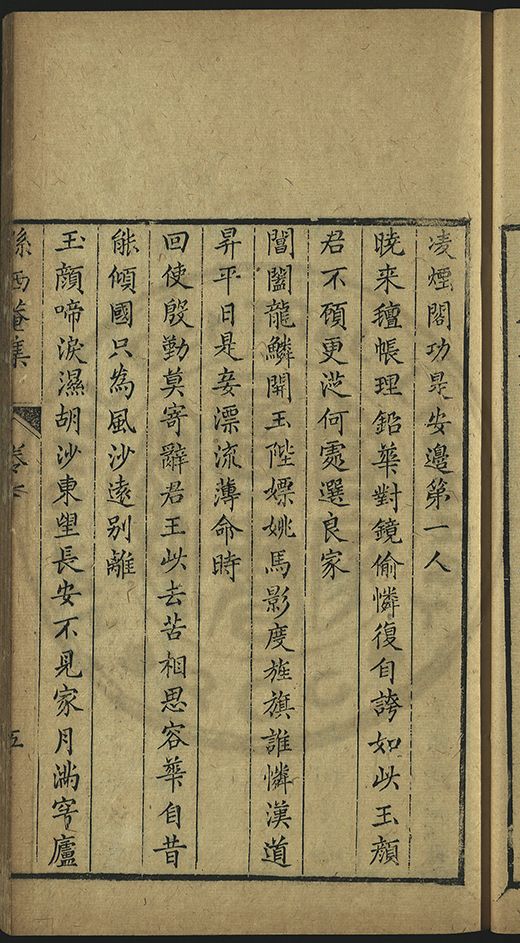 凌煙閣功是安邊第一人
曉来氊帳理鉛華對鏡偷憐復自誇如此玉顔
君不顧更從何處選良家
閶闔龍鱗開玉陛嫖姚馬影度旌旗誰憐漢道
昇平日是妾漂流薄命時
回使殷勤莫寄辭君王此去苦相思容華自昔
能傾國只為風沙遠别離
玉顔啼淚濕胡沙東望長安不見家月滿穹廬
孫西菴集
卷七
五